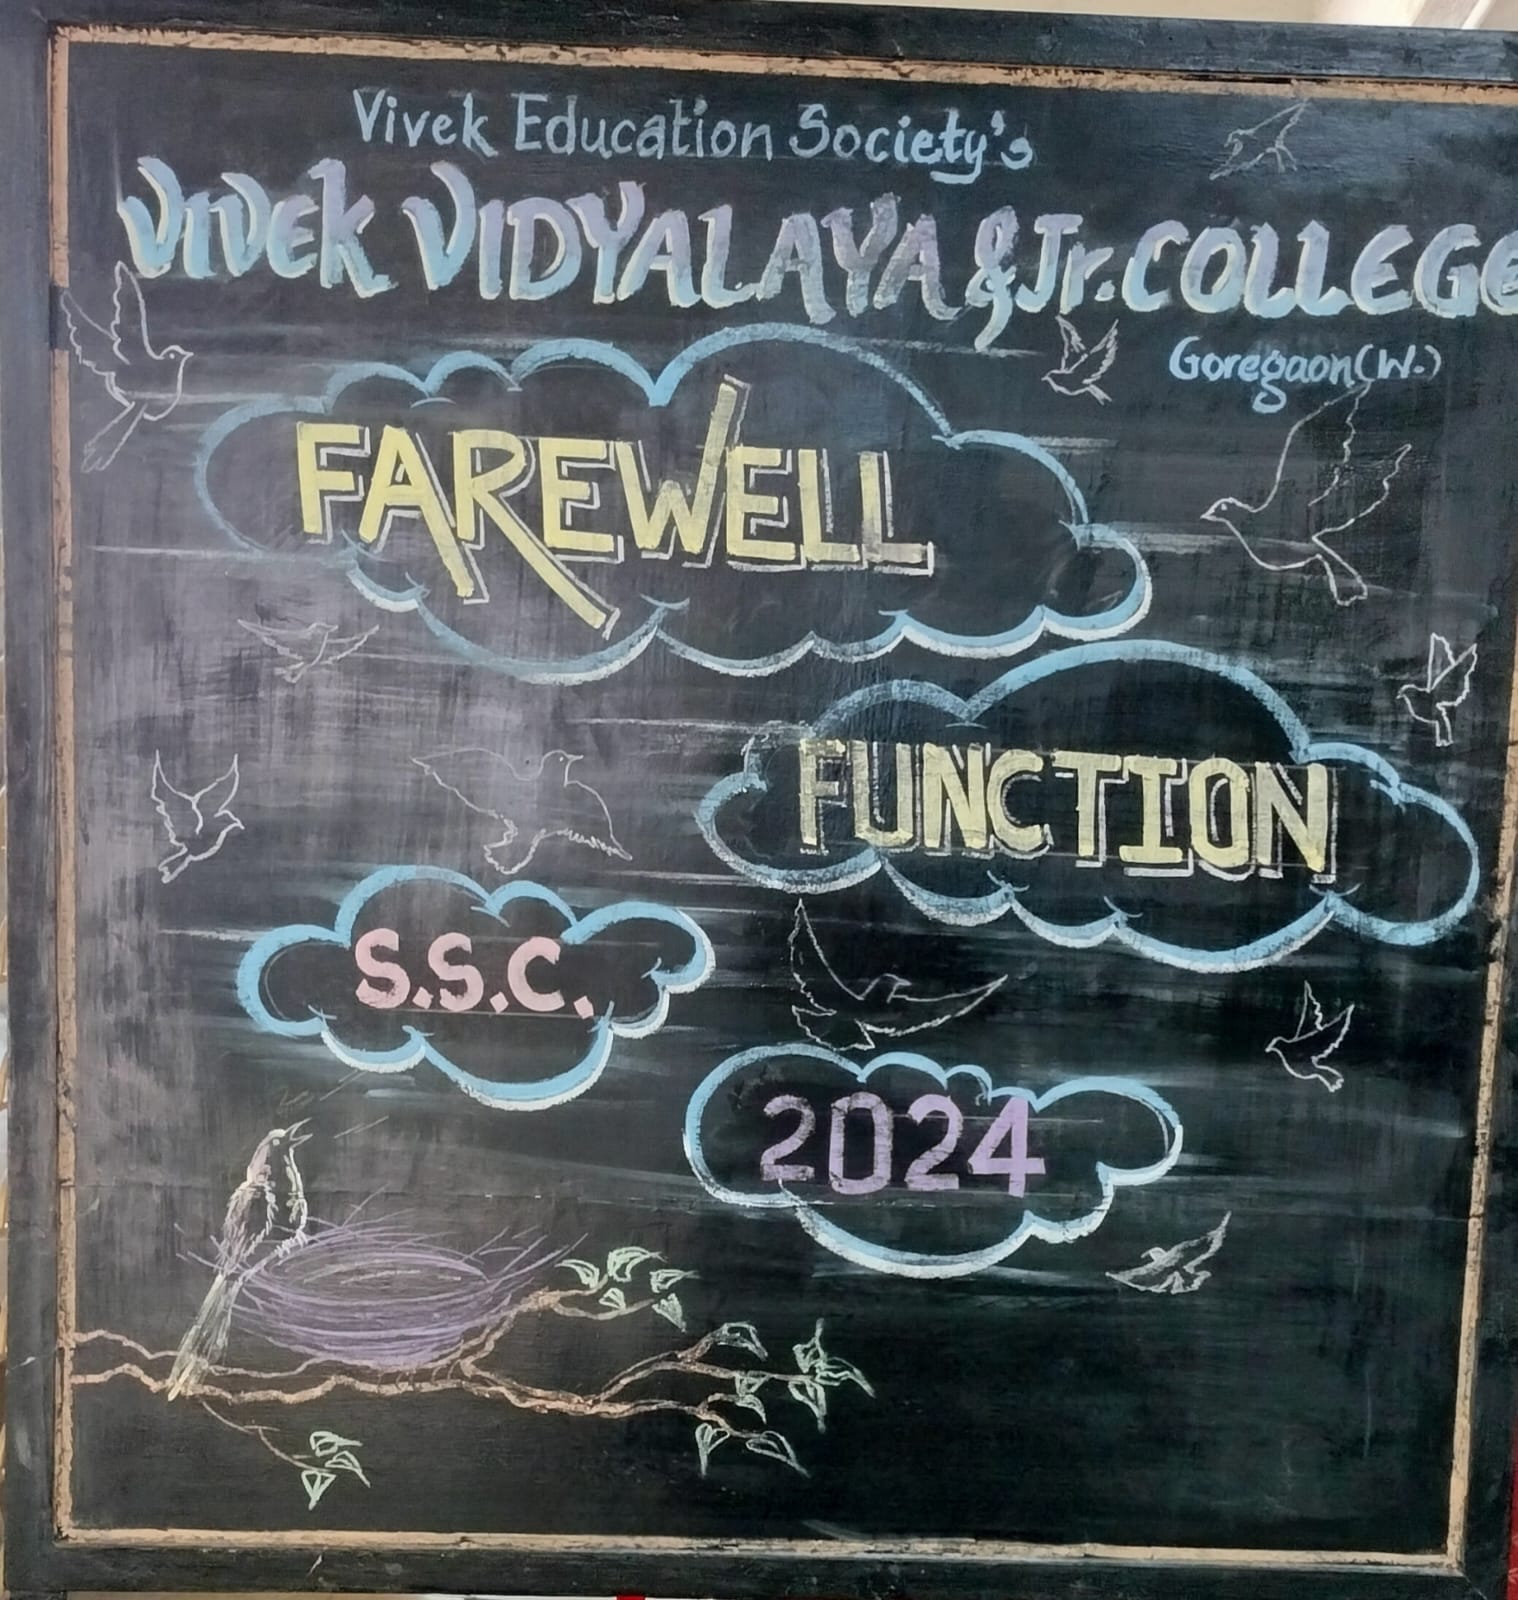 Vivek Education Society's
VIVEK VIDYALAYA & Jr. COLLEGE
Goregaon (W.)
FAREWELL
FUNCTION
S.S.C.
2024